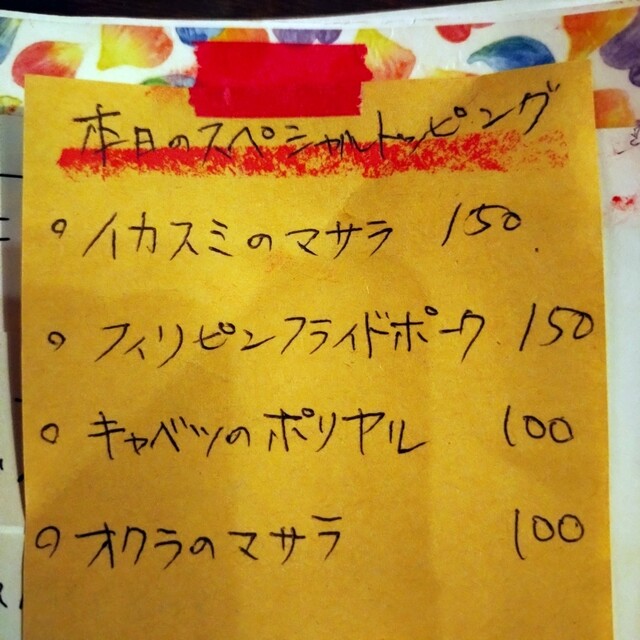 本日のスペシャルトッピング
○ イカスミのマサラ 150
○ フィリピンフライドポーク 150
○ キャベツのポリヤル 100
○ オクラのマサラ 100